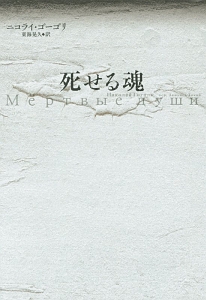 ニコライ・ゴーゴリ
東海晃久◆訳
死せる魂
Мертвые души